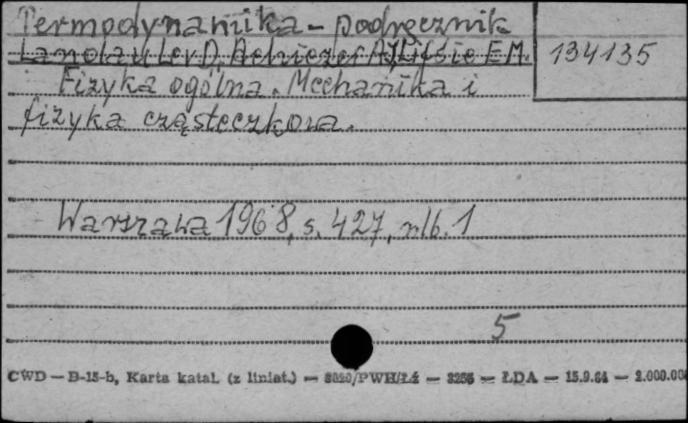 Termodynamika - podręcznik
134135
Landau Lev D. Achiezer A. Lifšic E.M.
Fizyka ogólna. Mechanika i
fizyka cząsteczkowa.
Warszawa 1968, s. 427, nlb. 1
5
CWD — B-15-b, Karta katal. (z liniat.) — PWH/Łź — — ŁDA — 15.9.64 — 2.000.00